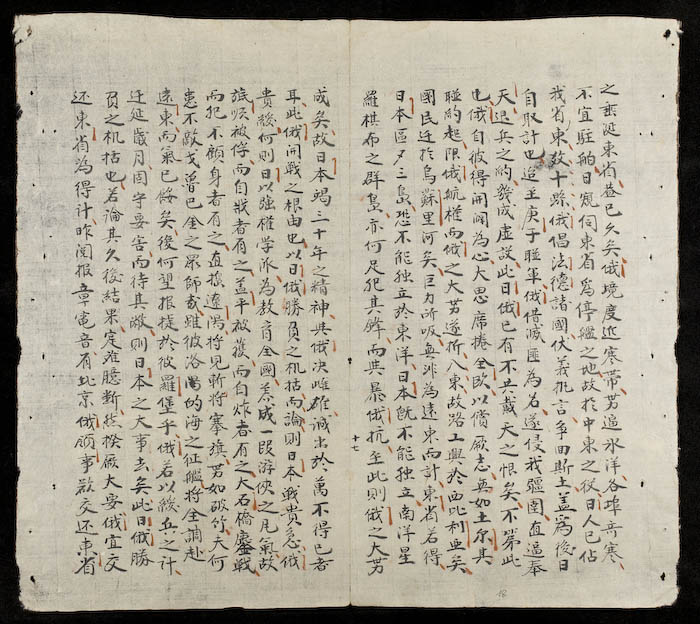 之垂涎東省盖已久矣俄境度近寒帶苐迫氷洋各埠苦寒
不宜駐舶日覬伺東省為停艦之地故於中東之役日人已佔
我省東数十縣俄倡法德諸國伏義執言爭田斯土盖為後日
自取計也迨至庚子聯軍俄借滅匪為名遂侵我疆圉直逼奉
天退兵之約幾成虛設此日俄已有不共戴天之恨矣不第此
也俄自彼得開闢為心大思席捲全欧以償厥志奥如土尔其
聯約起限俄航權而俄之大势遂折入東故路工興於西比利亜矣
國民迁扵烏蘇里河矣巨力所吸無非為遠東而計東省若得
日本區々三島恐不能独立於東洋日本既不能独立南洋星
羅棋布之群島亦何足犯其鋒而與暴俄抗至此則俄之大势
十七
成矣故日本竭三十年之精神與俄决雌雄誠出於萬不得已者
耳此俄開戰之根由也以日俄勝負之机括而論則日本戰貴急俄
貴緩何則日以強權学派為教育全國养成一段游俠之凡氣故
旅順被俘而自戕者有之盖平被獲而自炸者有之大石橋鏖戰
而犯不顧身者有之直搗遼陽将見斬将搴旗势如破竹夫何
患不敵戈魯巴金之衆師哉雖彼洛的海之征艦将全調赴
遠東而氣已餒矣後何望报捷於彼羅堡乎俄若以緩兵之计
迁延歲月固守要害而待其敝則日本之大事去矣此日俄勝
負之机括也若論其久後結果定难臆斷然揆厥大要俄宜交
还東省為得计昨閱报章電音有北京俄領事欲交还東省